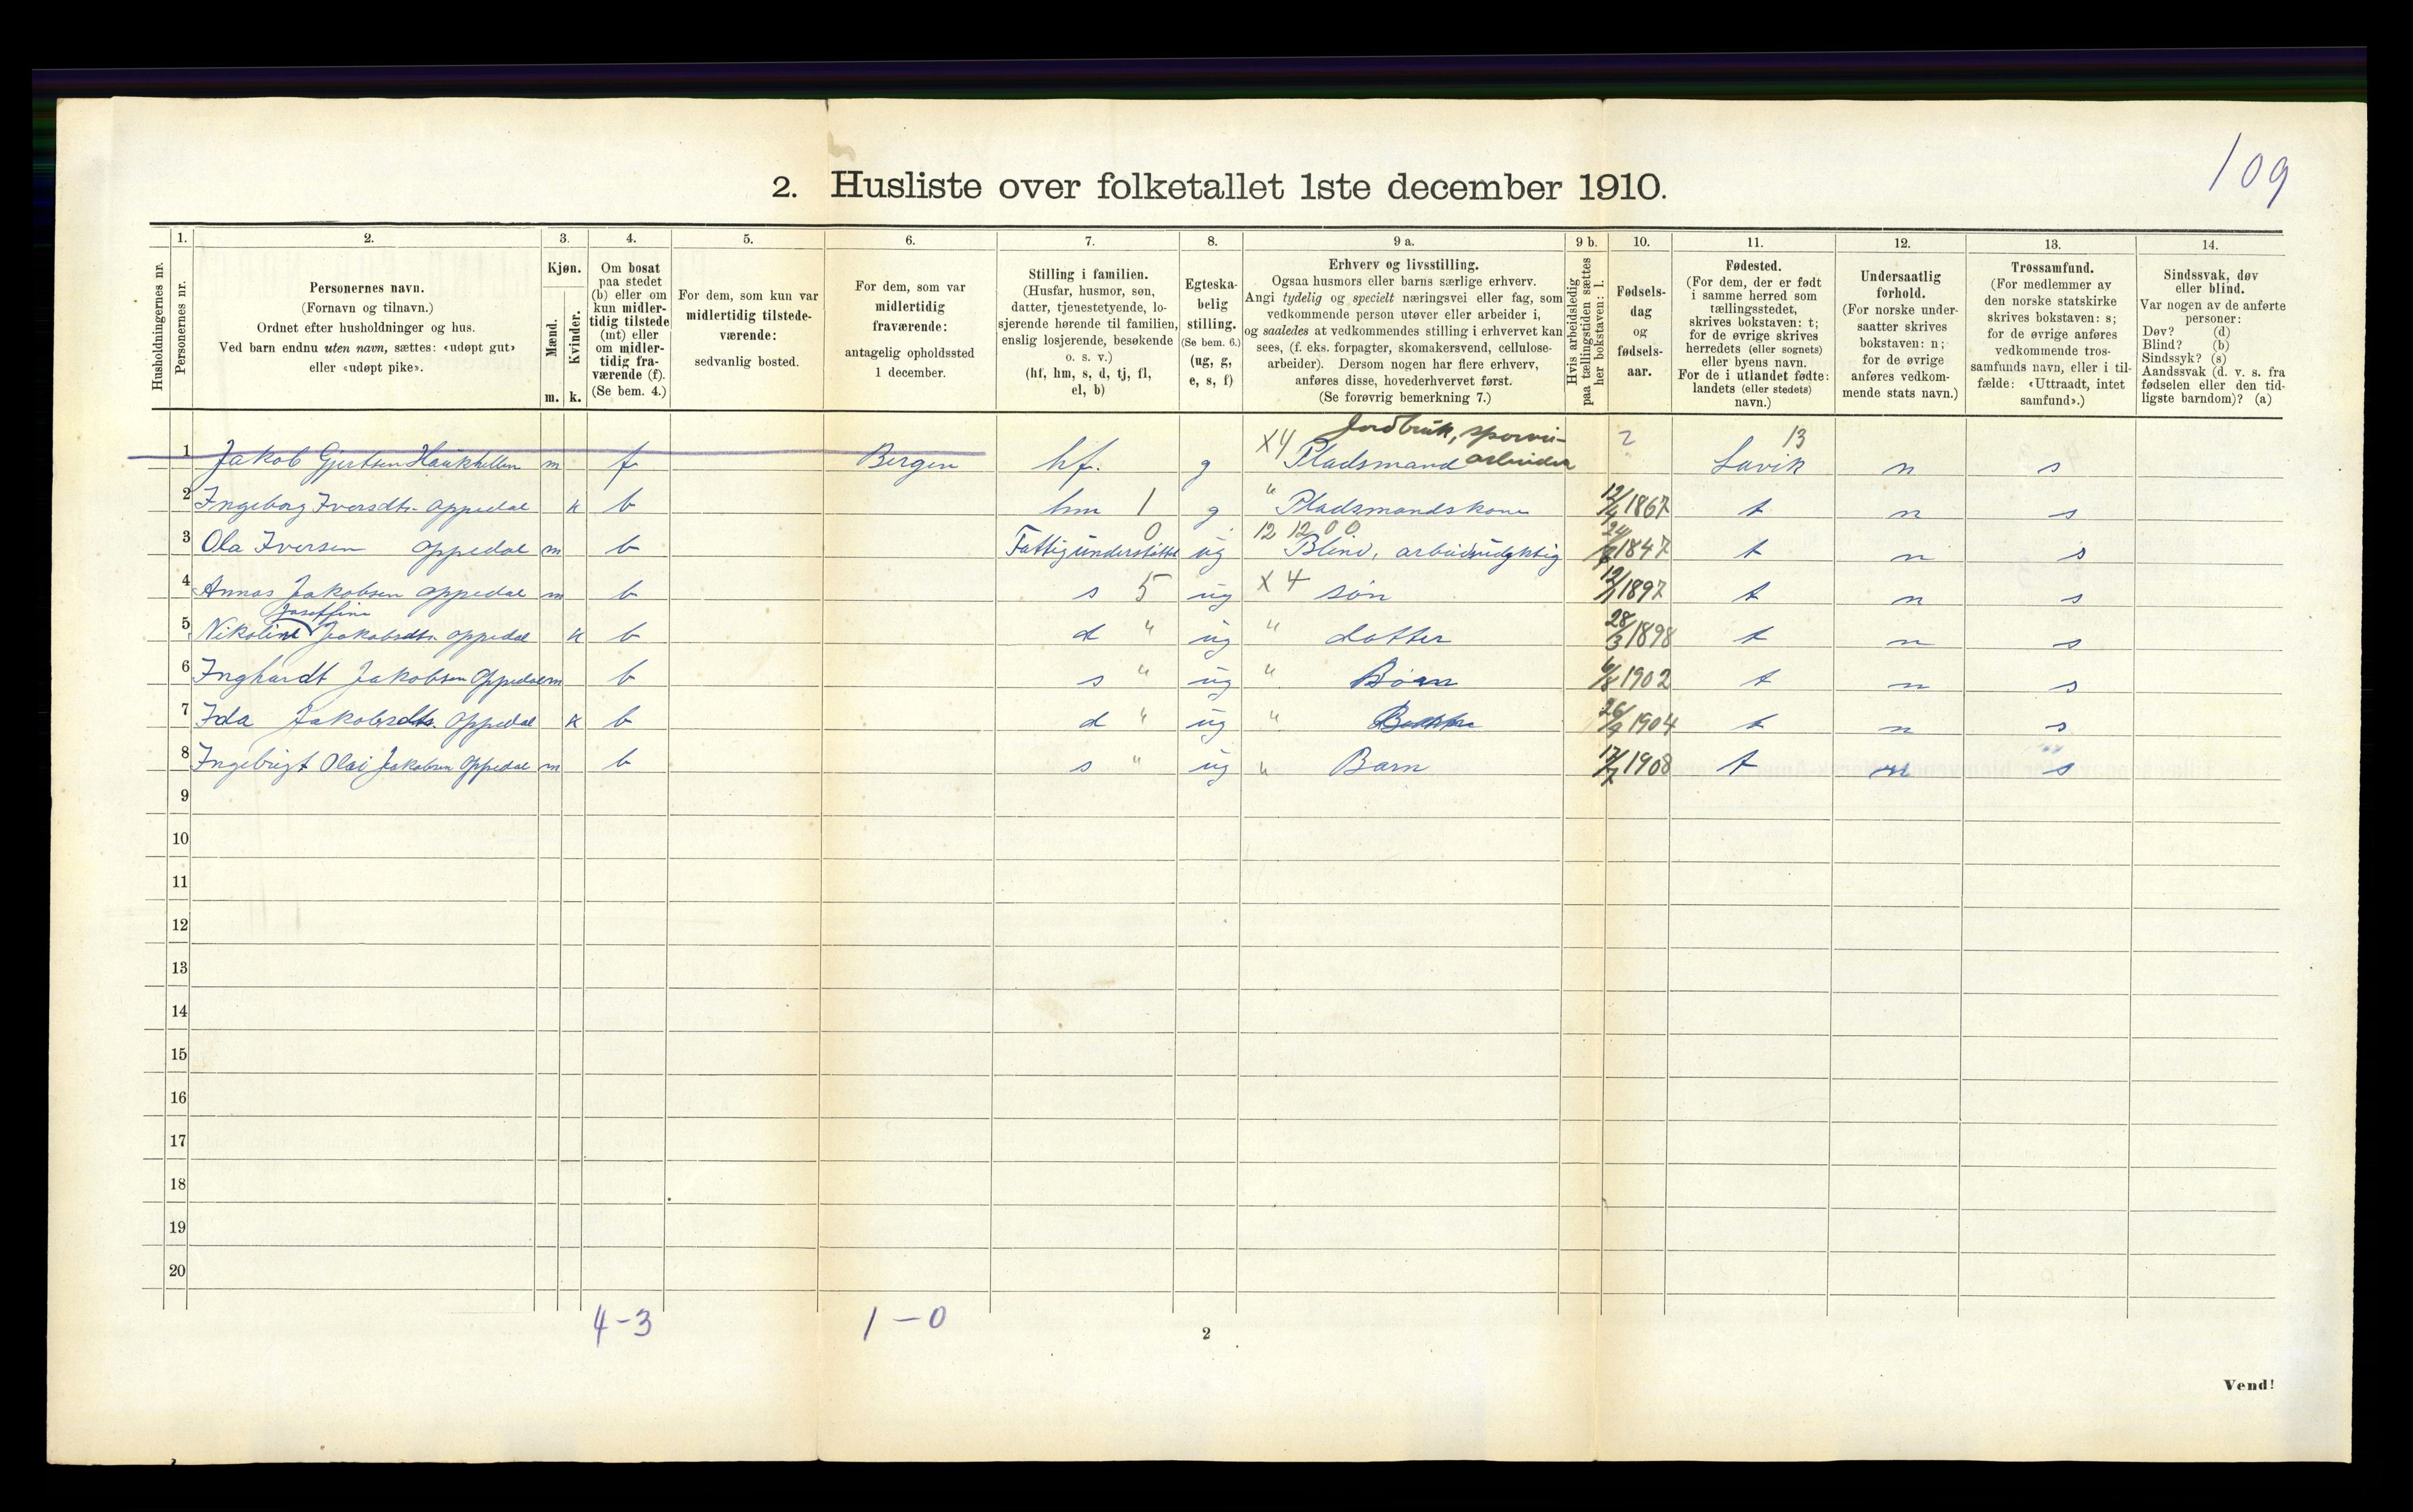 109
2. Husliste over folketallet 1ste december 1910.
1. 2. 3. 4. 5. 6. 7. 8. 9 a. 9 b. 10. 11. 12. 13. 14.
Husholdningernes nr.
Personernes nr.
Personernes navn.
(Fornavn og tilnavn.)
Ordnet efter husholdninger og hus.
Ved barn endnu uten navn, sættes: «udøpt gut»
eller «udøpt pike».
Kjøn.
Mænd.
Kvinder.
m. k.
Om bosat
paa stedet
(b) eller om
kun midler-
tidig tilstede
(mt) eller
om midler-
tidig fra-
værende (f).
(Se bem. 4.)
For dem, som kun var
midlertidig tilstede-
værende:
sedvanlig bosted.
For dem, som var
midlertidig
fraværende:
antagelig opholdssted
1 december.
Stilling i familien.
(Husfar, husmor, søn,
datter, tjenestetyende, lo-
sjerende hørende til familien,
enslig losjerende, besøkende
o. s. v.)
(hf, hm, s, d, tj, fl,
el, b)
Egteska-
belig
stilling.
(Se bem. 6.)
(ug, g,
e, s, f)
Erhverv og livsstilling.
Ogsaa husmors eller barns særlige erhverv.
Angi tydelig og specielt næringsvei eller fag, som
vedkommende person utøver eller arbeider i,
og saaledes at vedkommendes stilling i erhvervet kan
sees, (f. eks. forpagter, skomakersvend, cellulose-
arbeider). Dersom nogen har flere erhverv,
anføres disse, hovederhvervet først.
(Se forøvrig bemerkning 7.)
Hvis arbeidsledig
paa tællingstiden sættes
her bokstaven: l.
Fødsels-
dag
og
fødsels-
aar.
Fødested.
(For dem, der er født
i samme herred som
tællingsstedet,
skrives bokstaven: t;
for de øvrige skrives
herredets (eller sognets)
eller byens navn.
For de i utlandet fødte:
landets (eller stedets)
navn.)
Undersaatlig
forhold.
(For norske under-
saatter skrives
bokstaven: n;
for de øvrige
anføres vedkom-
mende stats navn.)
Trossamfund.
(For medlemmer av
den norske statskirke
skrives bokstaven: s;
for de øvrige anføres
vedkommende tros-
samfunds navn, eller i til-
fælde: «Uttraadt, intet
samfund».)
Sindssvak, døv
eller blind.
Var nogen av de anførte
personer:
Døv? (d)
Blind? (b)
Sindssyk? (s)
Aandssvak (d. v. s. fra
fødselen eller den tid-
ligste barndom)? (a)
Jordbruk, sporvei-
1 Jakob Gjertsen Haukhellen m f Bergen hf. g X4 Pladsmand arbeider ? Lavik 13 n s
2 Ingeborg Iversdtr. Oppedal k b hm 1 g " Pladsmandskone 12/4 1867 t n s
3 Ola Iversen Oppedal m b Fattigunderstøttet 0 ug 12 12 0 0 Blind, arbeidsudyktig 1847 t n s
4 Annas Jakobsen Oppedal m b s 5 ug X 4 søn 1897 t n s
Joseffine
5 Nikoline Jakobsdtr. Oppedal k b d " ug " datter 28/3 1898 t n s
6 Inghardt Jakobsen Oppedal m b s " ug " Barn 6/8 1902 t n s
7 Ida Jakobsdtr. Oppedal k b d " ug " 26/9 1904 t n s
8 Ingebrigt Olai Jakobsen Oppedal m b s " ug " Barn 17/7 1908 t n s
9
10
11
12
13
14
15
16
17
18
19
20
4-3 1-0
2
Vend!